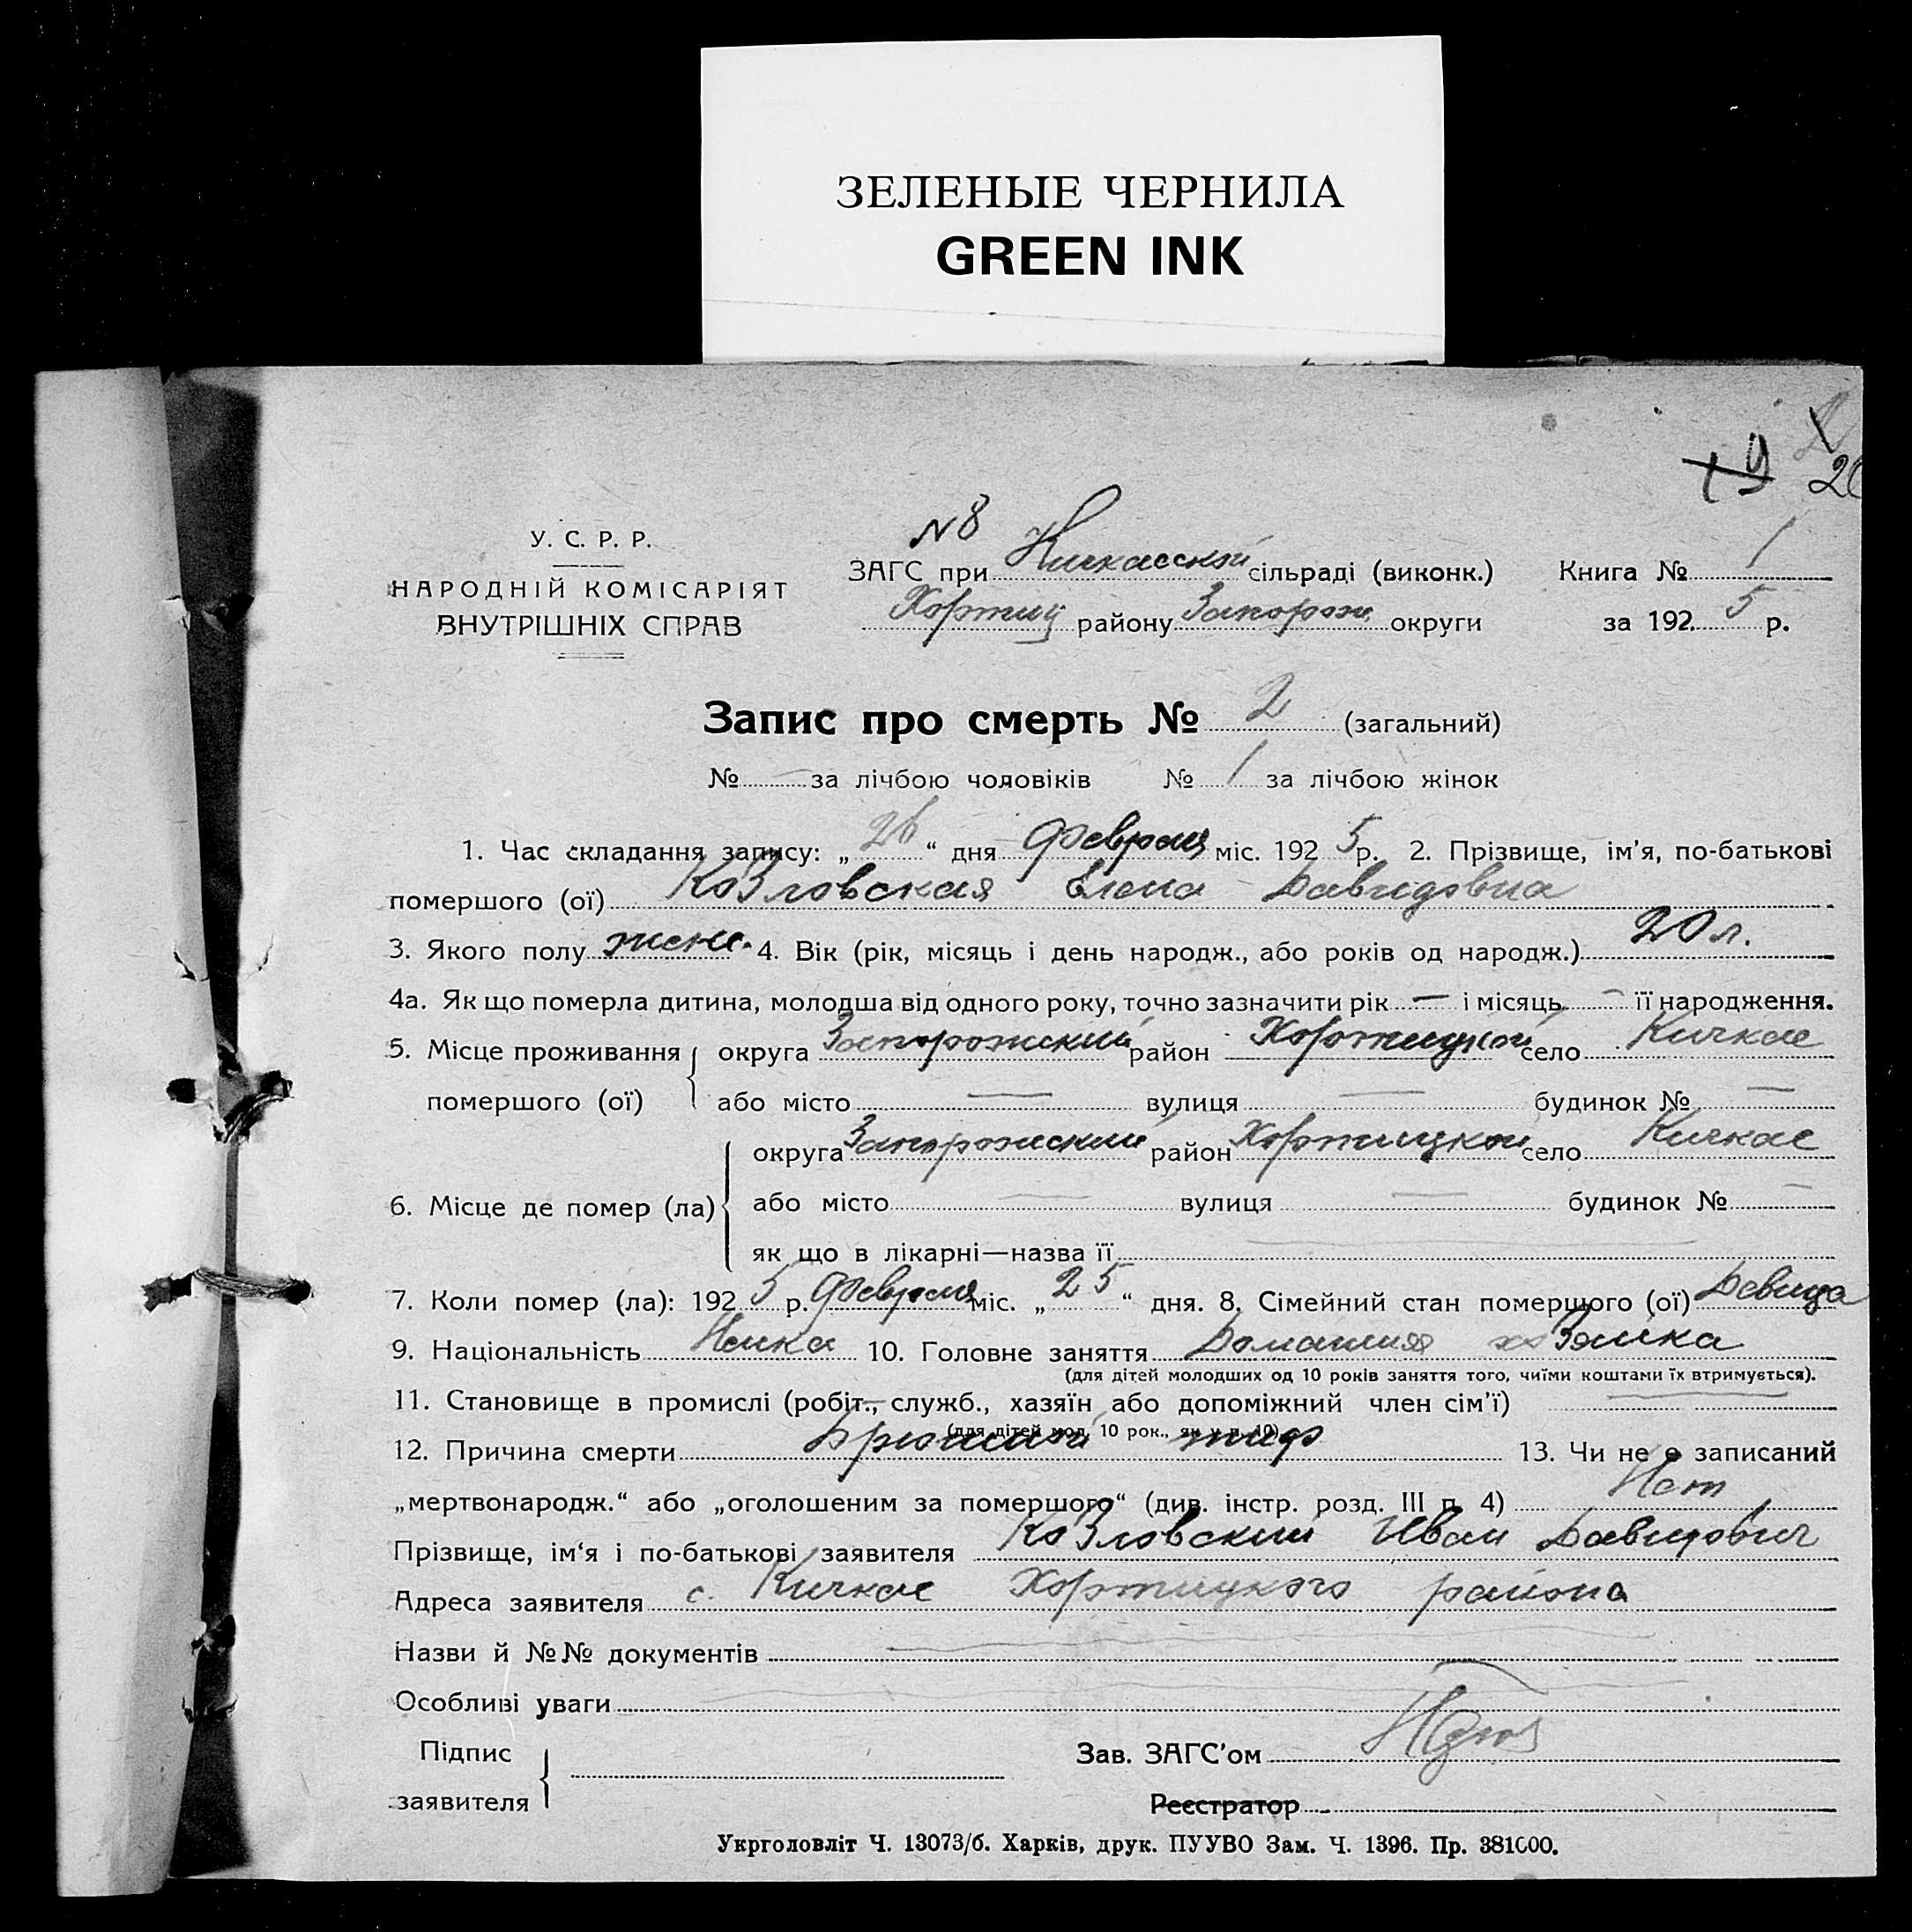 ЗЕЛЕНЫЕ ЧЕРНИЛА
GREEN INK
19 20
№ 8
У. С. Р. Р.
НАРОДНІЙ КОМІСАРІЯТ
ВНУТРІШНІХ СПРАВ
ЗАГС при Кичкасской сільраді (виконк.) Книга № 1
Хортиц району Запорож. округи за 192 5 р.
Запис про смерть № 2 (загальний)
№ — за лічбою чоловіків № 1 за лічбою жінок
1. Час складання запису: „ 26 “ дня Февраля міс. 192 5 р. 2. Прізвище, ім’я, по-батькові
помершого (ої) Козловская Елена Давидовна
3. Якого полу женс. 4. Вік (рік, місяць і день народж., або років од народж.) 20 л.
4а. Як що померла дитина, молодша від одного року, точно зазначити рік — і місяць — її народження.
5. Місце проживання округа Запорожский район Хортицкой село Кичкас
помершого (ої) або місто — вулиця — будинок № —
округа Запорожский район Хортицкой село Кичкас
6. Місце де помер (ла) або місто — вулиця — будинок № —
як що в лікарні—назва її —
7. Коли помер (ла): 192 5 р. Февраля міс. „ 25 “ дня. 8. Сімейний стан помершого (ої) Девица
9. Національність Немка 10. Головне заняття Домашняя хозяйка
(для дітей молодших од 10 років заняття того, чиїми коштами їх втримується).
11. Становище в промислі (робіт., служб., хазяїн або допоміжний член сім’ї) —
(для дітей мол. 10 рок., як у п. 10)
12. Причина смерти Брюшной тиф 13. Чи не є записаний
„мертвонародж.“ або „оголошеним за помершого“ (див. інстр. розд. III п. 4) Нет
Прізвище, ім‘я і по-батькові заявителя Козловский Иван Давидович
Адреса заявителя с. Кичкас Хортицкого района
Назви й №№ документів —
Особливі уваги —
Підпис
заявителя
Зав. ЗАГС’ом
Реєстратор
Укрголовліт Ч. 13073/б. Харків, друк. ПУУВО Зам. Ч. 1396. Пр. 381000.